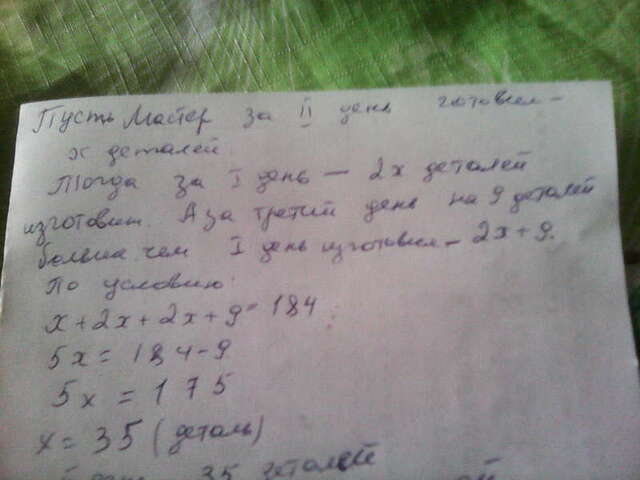 Пусть Мастер за II день готовил –
х деталей.
Тогда за I день — 2х деталей
изготовил. А за третий день на 9 деталей
больше чем I день изготовил – 2х+9.
По условию:
х+2х+2х+9=184
5х=184-9
5х=175
х=35 (деталь)
35 деталей